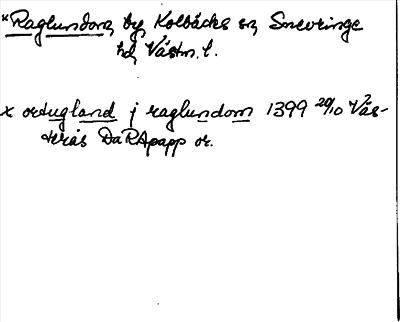 *Raglundom, by, Kolbäcks sn, Snevringe
hd, Västm. l.
x ortugland j raglundom 1399 20/10 Väs-
terås DaRApapp or.